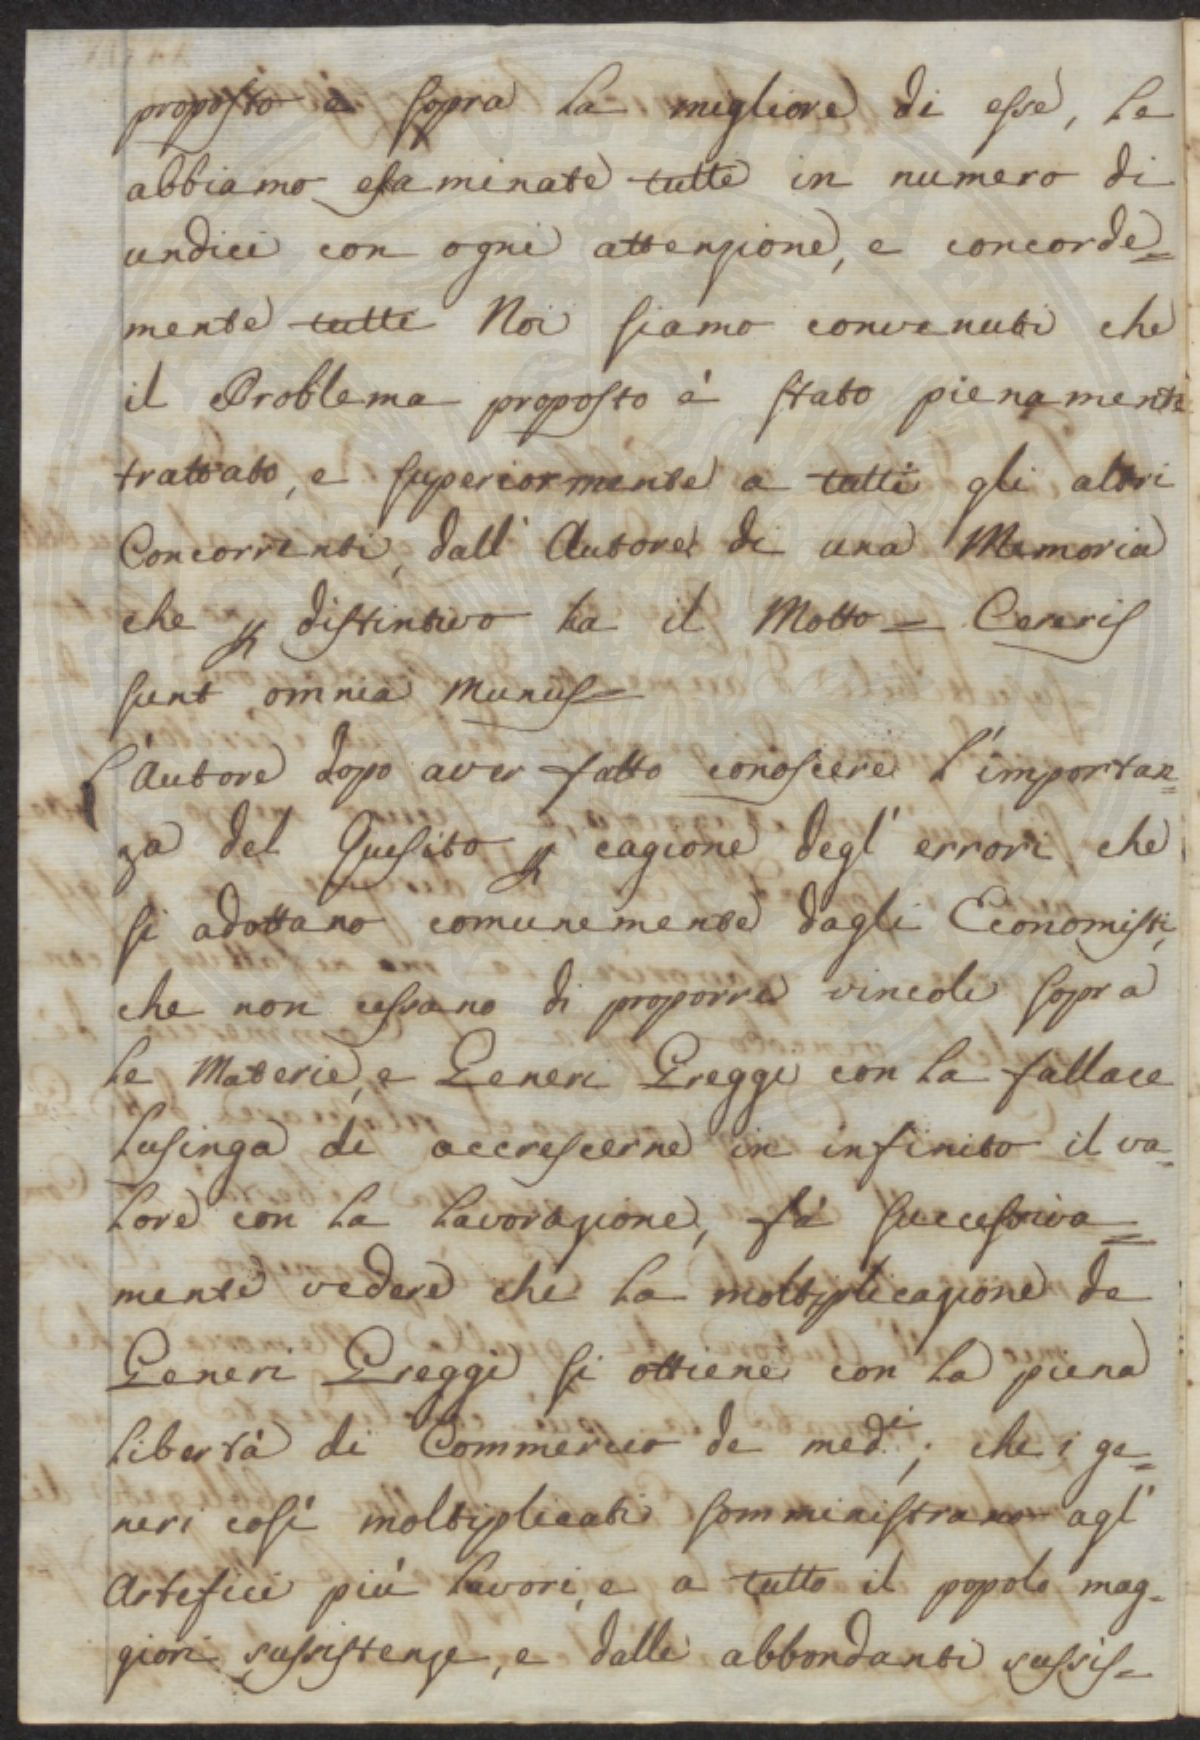 proposto è sopra la migliore di esse, le
abbiamo esaminate tutte in numero di
undici con ogni attenzione, e concorde=
mente tutti Noi siamo convenuti che
il Problema proposto è stato pienamente
trattato, e superiormente a tutti gli altri
Concorrenti, dall' Autore di una Memoria
che p distintivo ha il Motto = Cereris
sunt omnia munus =
L'Autore dopo aver fatto conoscere l'importan=
za del Quesito p cagione degl' errori che
si adottano comunemente dagli Economisti,
che non cessano di proporre vincoli sopra
le Materie, e Generi Greggi con la fallace
lusinga di accrescerne in infinito il va=
lore con la lavorazione, fà successiva=
mente vedere che la moltiplicazione de
Generi Greggi si ottiene con la piena
libertà di Commercio de med.i; che i ge=
neri così moltiplicati somministrano agl'
Artefici più lavori, e a tutto il popolo mag=
giori sussistenze, e dalle abbondanti sussis=